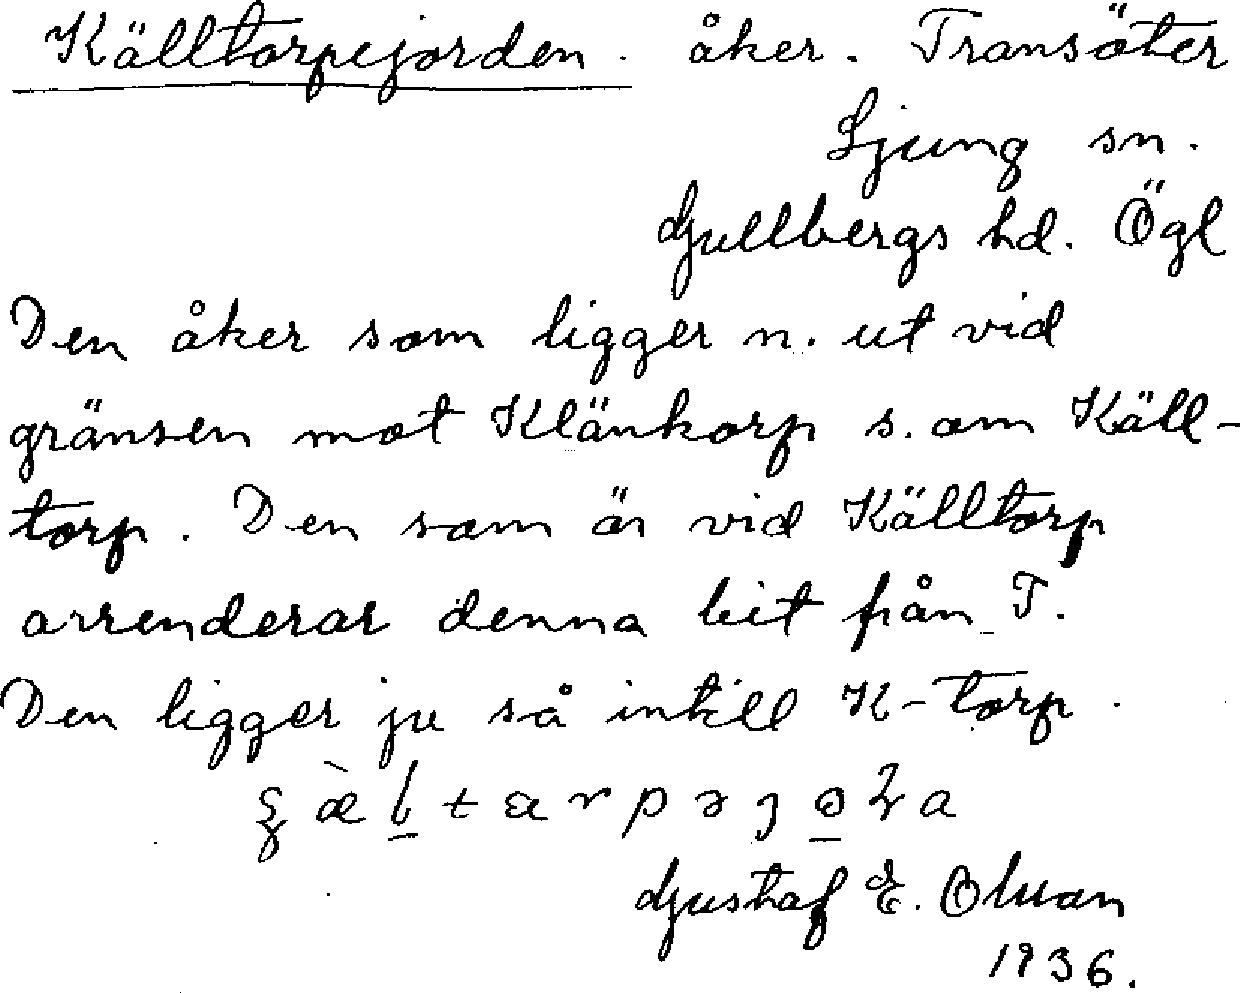 Källtorpejorden. åker. Transäter
Ljung sn.
Gullbergs hd. Ögl
Den åker som ligger n. ut vid
gränsen mot Klänkorp s. om Käll-
torp. Den som är vid Källtorp
arrenderar denna bit från T.
Den ligger ju så intill K-torp.
Gustaf E.
1936.